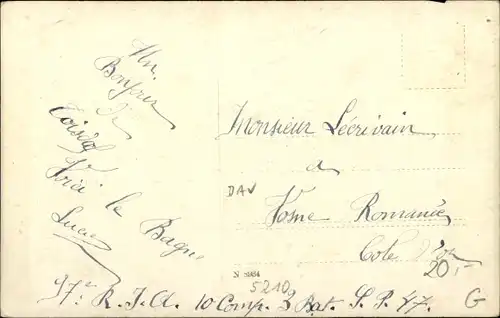 Un
Bonjour
de
Voici le Bagne
Lucien
Monsieur Lécrivain
a
Vosne Romanée
Cote d'or
DAV
N 5064
5210
20,-
97e R. I. A. 10 Comp. 3 Bat. S. P. 47.
G